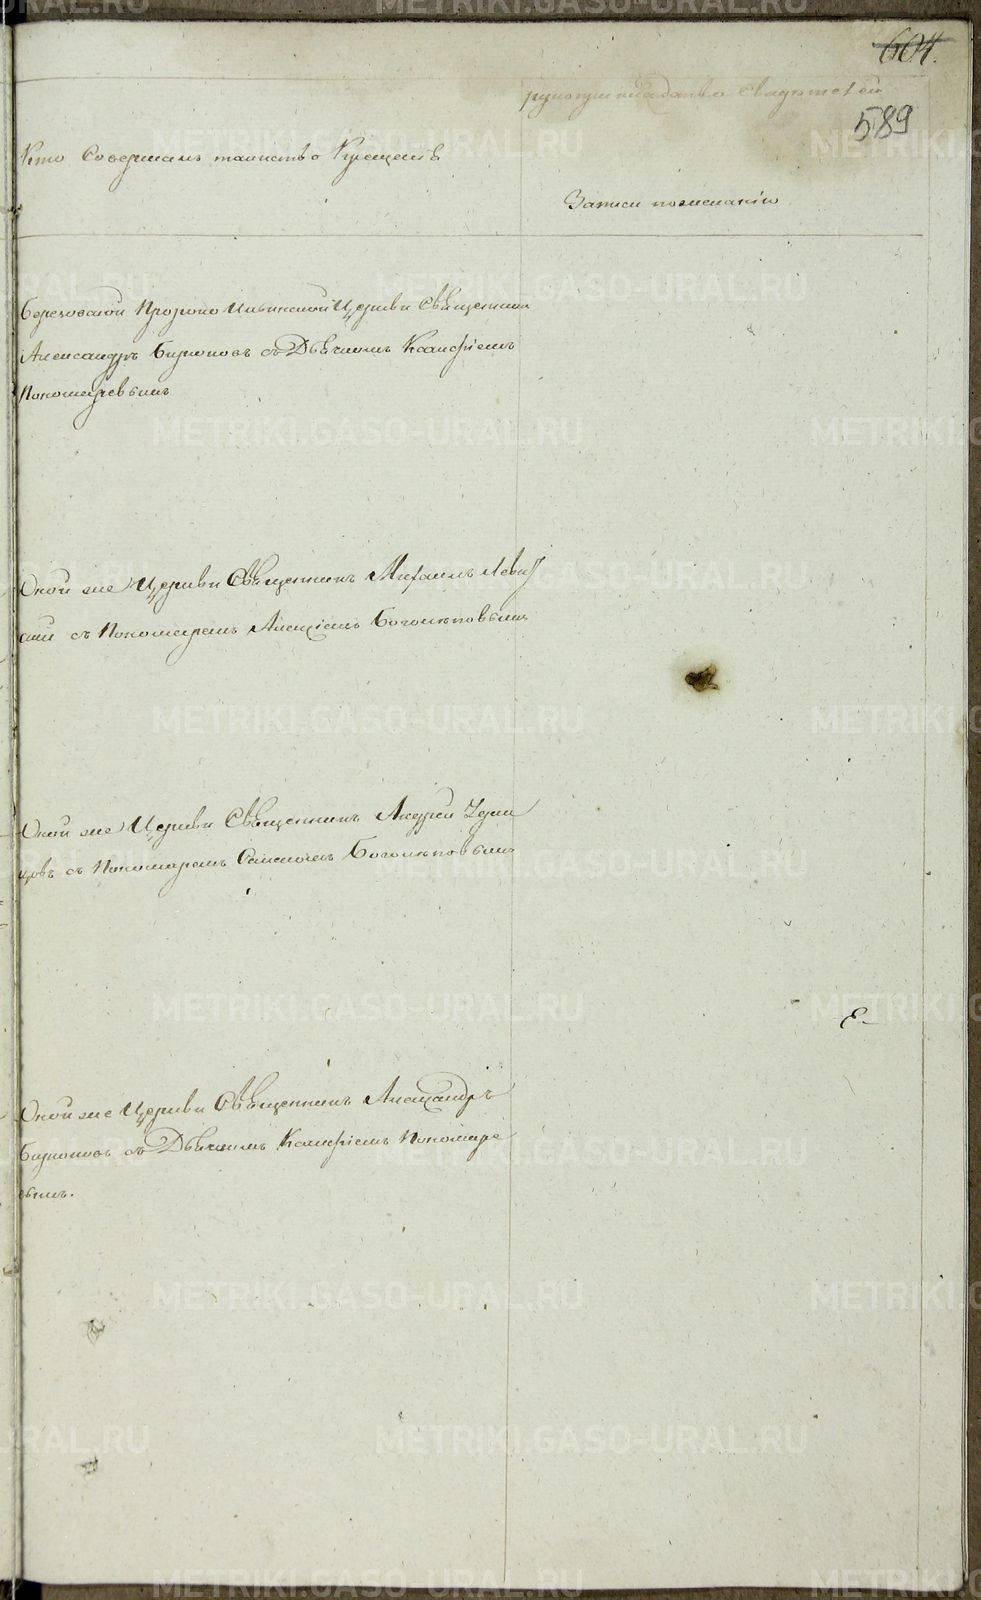 604.
589
рукоприкладство свидетелей
Кто совершалъ таинство Крещенiя
Записи по желанiю
Березовской Пророко Ильинской Церкви Священникъ
Александръ Бирюковъ съ Дьячкомъ
Пономаревымъ
Оной же Церкви Священникъ Михаилъ Левит
скiй съ Пономаремъ Алексiемъ Боголеповымъ
Оной же Церкви Священникъ Андрей Удин
цовъ съ Пономаремъ Боголеповымъ
Оной же Церкви Священникъ Александръ
Бирюковъ съ Дьячкомъ Пономаре
вымъ.
METRIKI.GASO-URAL.RU